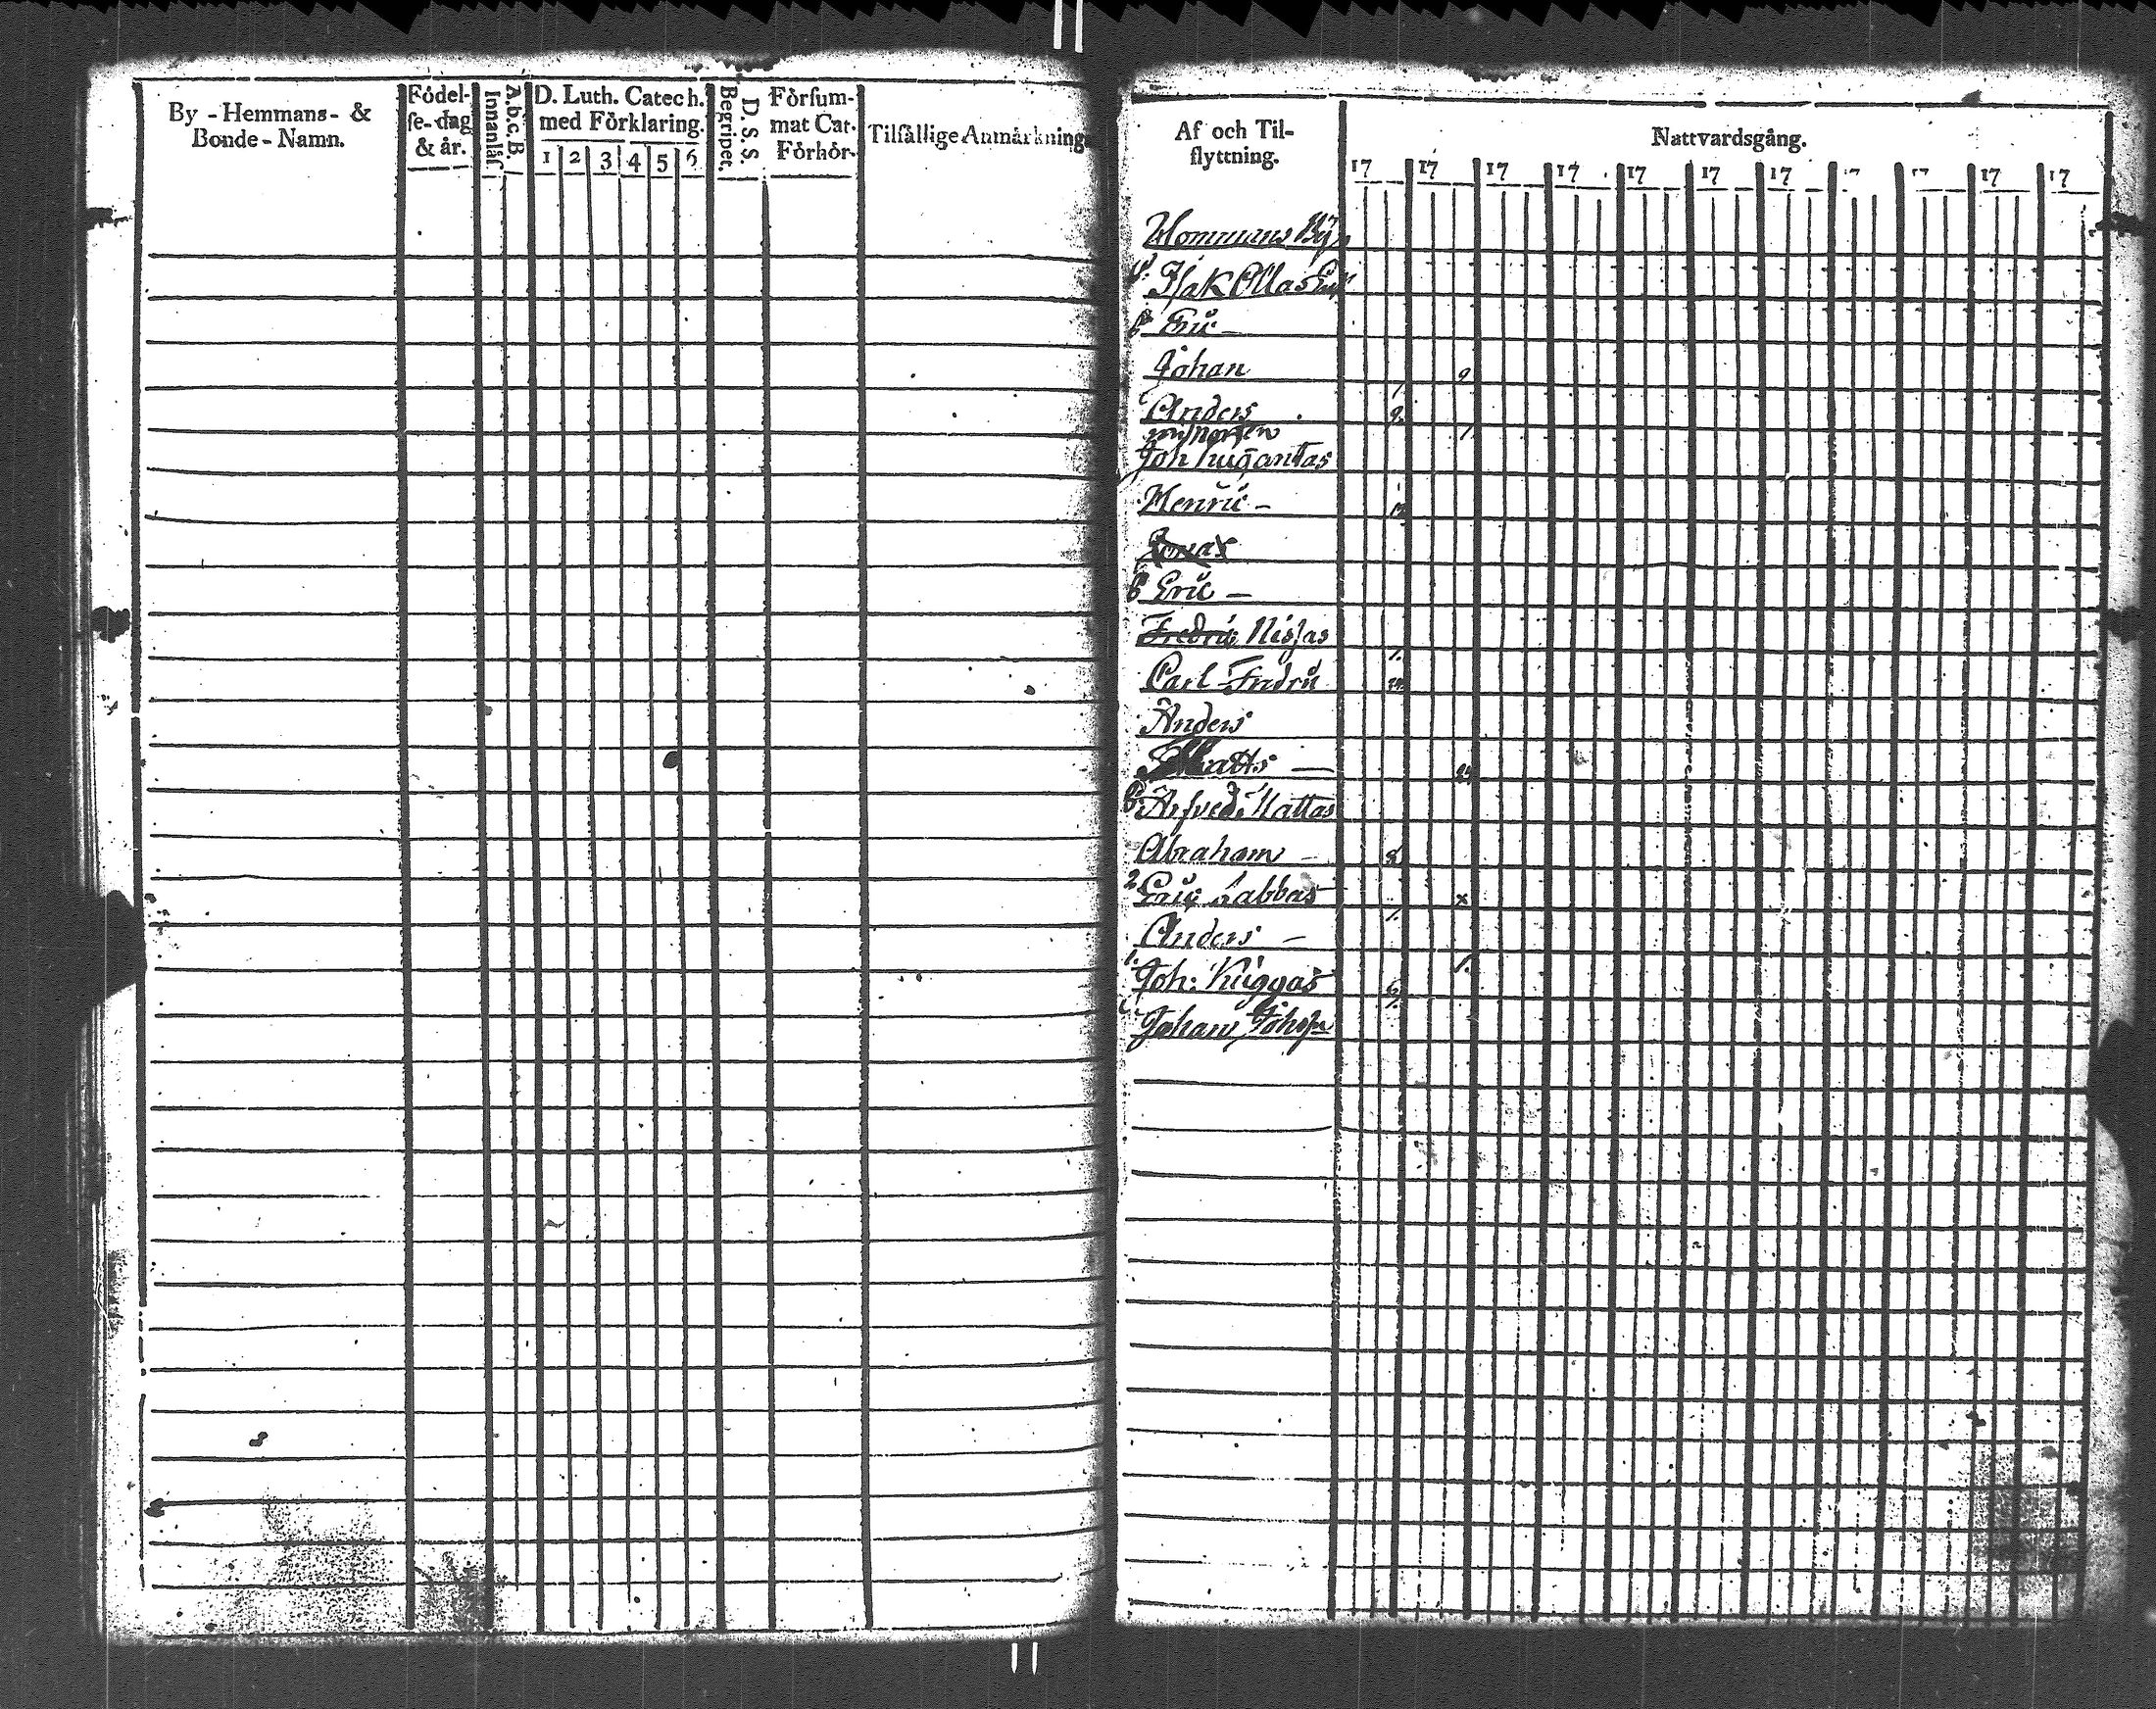 By - Hemmans- &
Bonde - Namn.
Födel-
se-dag
& år.
A.b.c.B.
Innanläs.
D. Luth. Catech.
med Förklaring.
1 2 3 4 5 6
D. S. S.
Begripet.
Försum-
mat Cat.
Förhör.
Tilfällige Anmärkning
Af och Til-
flyttning.
Nattvardsgång.
17 17 17 17 17 17 17 17 17
By
Isak Ollas
Johan 9
Anders 9
Joh
Henric -
Jonas
6 Eric -
Fredric Nissas
Carl Fredric
Anders
Matts -
Arfved Mattas
Abraham - 8
2 Eric Labbas x
Anders -
1. Joh: Kuggas
Johan Johss